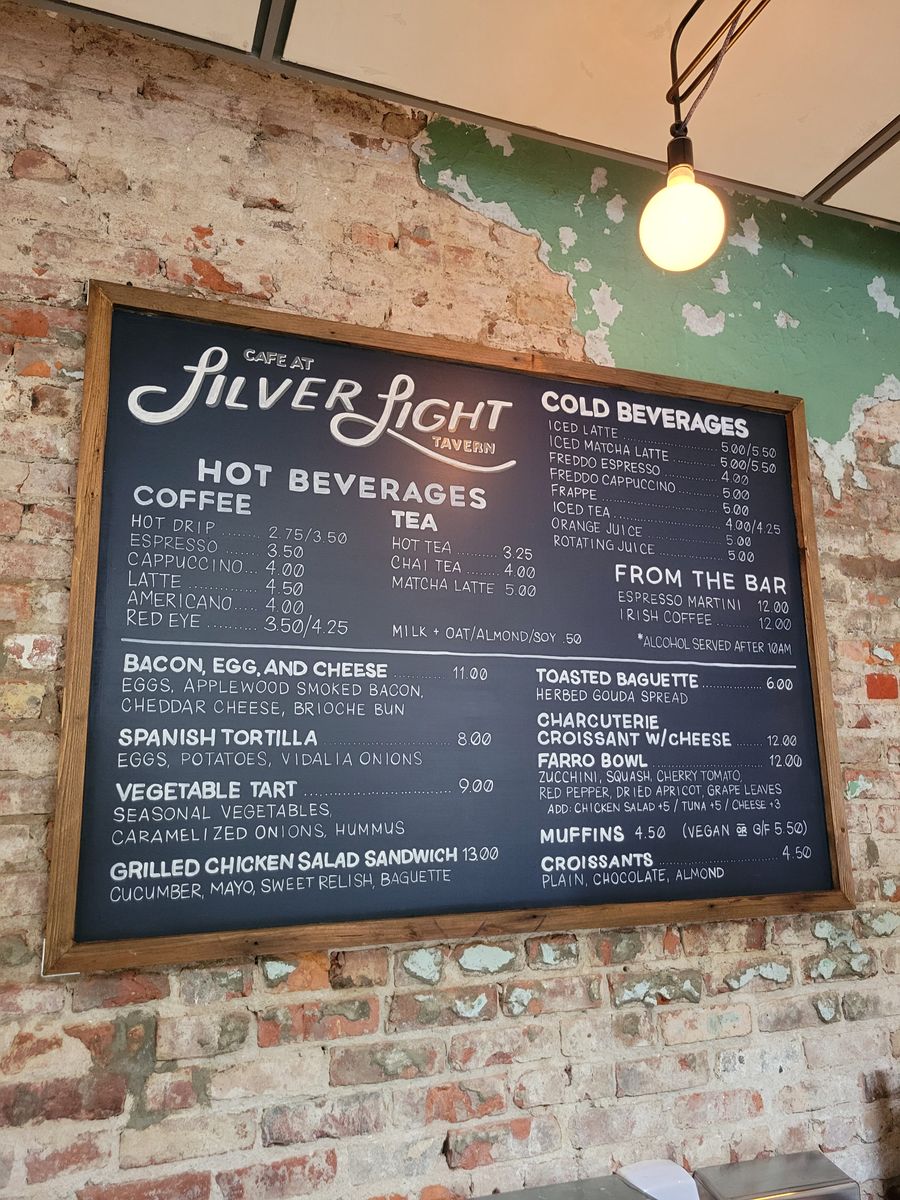 CAFE AT
SILVER LIGHT
TAVERN
HOT BEVERAGES
COFFEE
HOT DRIP 2.75/3.50
ESPRESSO ...... 3.50
CAPPUCCINO... 4.00
LATTE ............ 4.50
AMERICANO.... 4.00
RED EYE .......... 3.50/4.25
TEA
HOT TEA ......... 3.25
CHAI TEA ........ 4.00
MATCHA LATTE 5.00
MILK + OAT/ALMOND/SOY .50
COLD BEVERAGES
ICED LATTE ........................ 5.00/5.50
ICED MATCHA LATTE ............ 5.00/5.50
FREDDO ESPRESSO ............. 4.00
FREDDO CAPPUCCINO .......... 5.00
FRAPPE ............................. 5.00
ICED TEA ........................... 4.00/4.25
ORANGE JUICE .................... 5.00
ROTATING JUICE .................. 5.00
FROM THE BAR
ESPRESSO MARTINI 12.00
IRISH COFFEE ............ 12.00
*ALCOHOL SERVED AFTER 10AM
BACON, EGG, AND CHEESE ............. 11.00
EGGS, APPLEWOOD SMOKED BACON,
CHEDDAR CHEESE, BRIOCHE BUN
SPANISH TORTILLA ......................... 8.00
EGGS, POTATOES, VIDALIA ONIONS
VEGETABLE TART ............................ 9.00
SEASONAL VEGETABLES,
CARAMELIZED ONIONS, HUMMUS
GRILLED CHICKEN SALAD SANDWICH 13.00
CUCUMBER, MAYO, SWEET RELISH, BAGUETTE
TOASTED BAGUETTE ............. 6.00
HERBED GOUDA SPREAD
CHARCUTERIE
CROISSANT W/CHEESE ....... 12.00
FARRO BOWL ....................... 12.00
ZUCCHINI, SQUASH, CHERRY TOMATO,
RED PEPPER, DRIED APRICOT, GRAPE LEAVES
ADD: CHICKEN SALAD +5 / TUNA +5 / CHEESE +3
MUFFINS 4.50 (VEGAN OR G/F 5.50)
CROISSANTS ........................ 4.50
PLAIN, CHOCOLATE, ALMOND